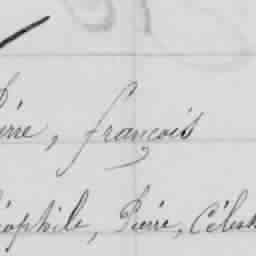 Pierre, françois
éophile, Pierre, Célest